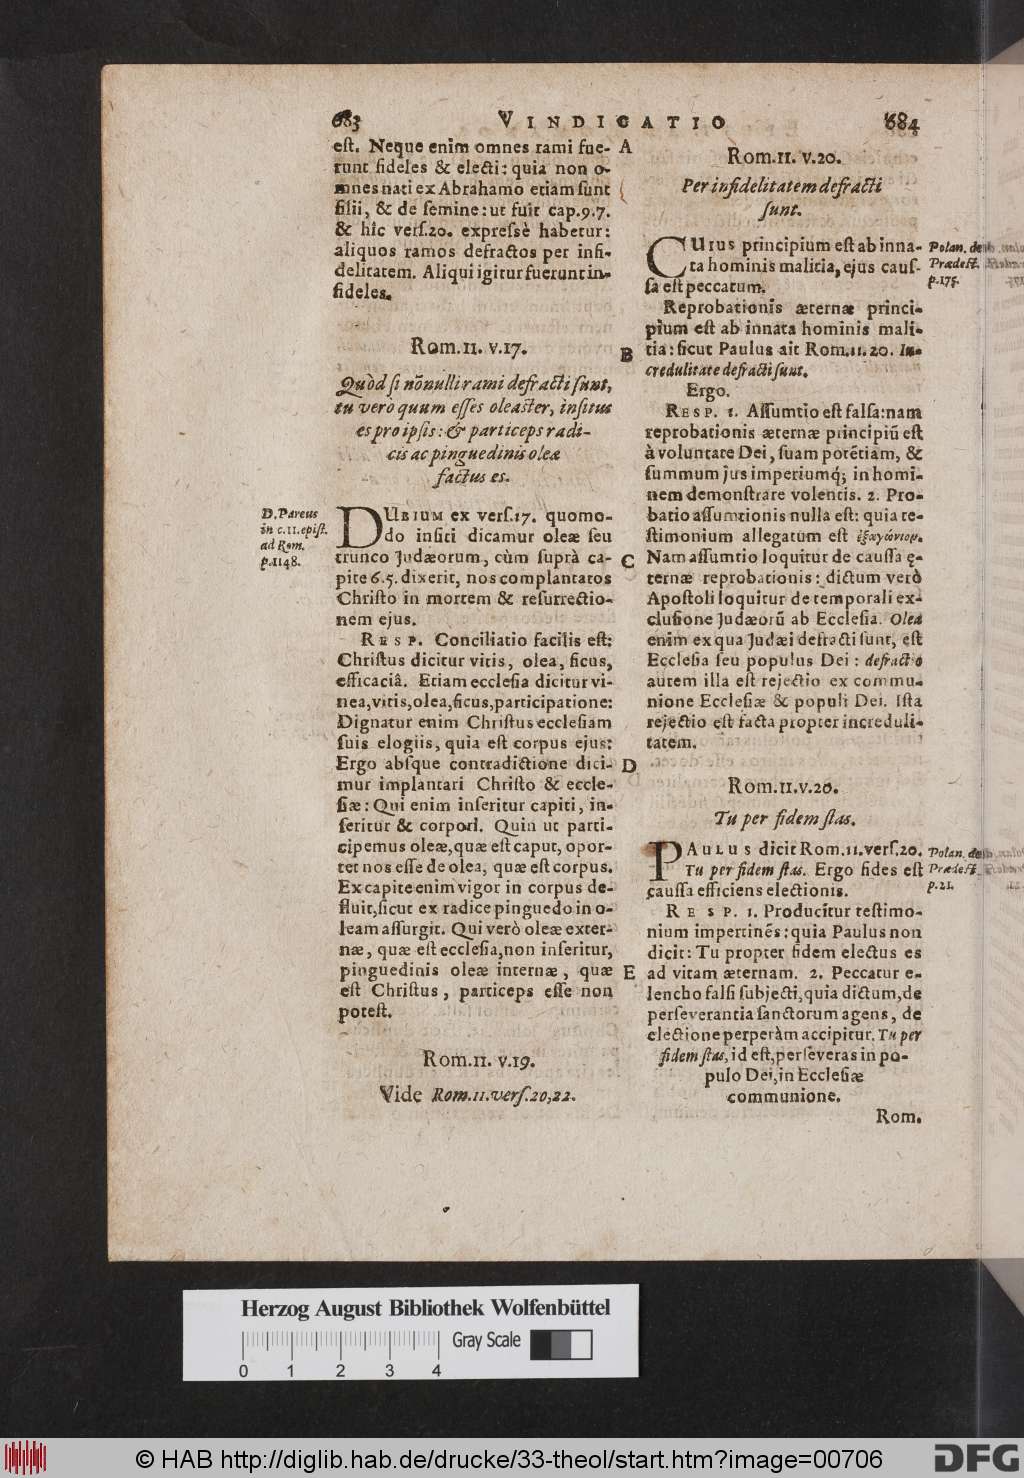 683 VINDICATIO 684
est. Neque enim omnes rami fue-
runt fideles & electi: quia non o-
mnes nati ex Abrahamo etiam sunt
filii, & de semine: ut fuit cap.9.7.
& hîc vers.20. expressè habetur:
aliquos ramos defractos per infi-
delitatem. Aliqui igitur fuerunt in-
fideles.
Rom.11. v.17.
Quòd si nõnulli rami defracti sunt,
tu verò quum esses oleaster, insitus
es pro ipsis: & particeps radi-
cis ac pinguedinis oleæ
factus es.
D. Pareus
in c.11. epist.
ad Rom.
p.1148.
DUBIUM ex vers.17. quomo-
do insiti dicamur oleæ seu
trunco Judæorum, cùm suprà ca-
pite 6.5. dixerit, nos complantatos
Christo in mortem & resurrectio-
nem ejus.
RESP. Conciliatio facilis est:
Christus dicitur vitis, olea, ficus,
efficaciâ. Etiam ecclesia dicitur vi-
nea, vitis, olea, ficus, participatione:
Dignatur enim Christus ecclesiam
suis elogiis, quia est corpus ejus:
Ergo absque contradictione dici-
mur implantari Christo & eccle-
siæ: Qui enim inseritur capiti, in-
seritur & corpori. Quin ut parti-
cipemus oleæ, quæ est caput, opor-
tet nos esse de olea, quæ est corpus.
Ex capite enim vigor in corpus de-
fluit, sicut ex radice pinguedo in o-
leam assurgit. Qui verò oleæ exter-
næ, quæ est ecclesia, non inseritur,
pinguedinis oleæ internæ, quæ
est Christus, particeps esse non
potest.
Rom.11. v.19.
Vide Rom.11. vers.20,22.
A
B
C
D
E
Rom.11. v.20.
Per infidelitatem defracti
sunt.
CUjus principium est ab inna-
ta hominis malitia, ejus caus-
sa est peccatum.
Polan. de
Prædest.
p.175.
Reprobationis æternæ princi-
pium est ab innata hominis mali-
tia: sicut Paulus ait Rom.11.20. In-
credulitate defracti sunt.
Ergo.
RESP. 1. Assumtio est falsa: nam
reprobationis æternæ principiũ est
à voluntate Dei, suam potẽtiam, &
summum jus imperiumq; in homi-
nem demonstrare volentis. 2. Pro-
batio assumtionis nulla est: quia te-
stimonium allegatum est ἐξαγώνιον.
Nam assumtio loquitur de caussa ę-
ternæ reprobationis: dictum verò
Apostoli loquitur de temporali ex-
clusione Judæorũ ab Ecclesia. Olea
enim ex qua Judæi defracti sunt, est
Ecclesia seu populus Dei: defractio
autem illa est rejectio ex commu-
nione Ecclesiæ & populi Dei. Ista
rejectio est facta propter increduli-
tatem.
Rom.11.v.20.
Tu per fidem stas.
PAULUS dicit Rom.11.vers.20.
Tu per fidem stas. Ergo fides est
caussa efficiens electionis.
Polan. de
Prædest.
p.21.
RESP. 1. Producitur testimo-
nium impertinẽs: quia Paulus non
dicit: Tu propter fidem electus es
ad vitam æternam. 2. Peccatur e-
lencho falsi subjecti, quia dictum, de
perseverantia sanctorum agens, de
electione perperàm accipitur. Tu per
fidem stas, id est, perseveras in po-
pulo Dei, in Ecclesiæ
communione.
Rom.
Herzog August Bibliothek Wolfenbüttel
Gray Scale
0 1 2 3 4
© HAB http://diglib.hab.de/drucke/33-theol/start.htm?image=00706
DFG